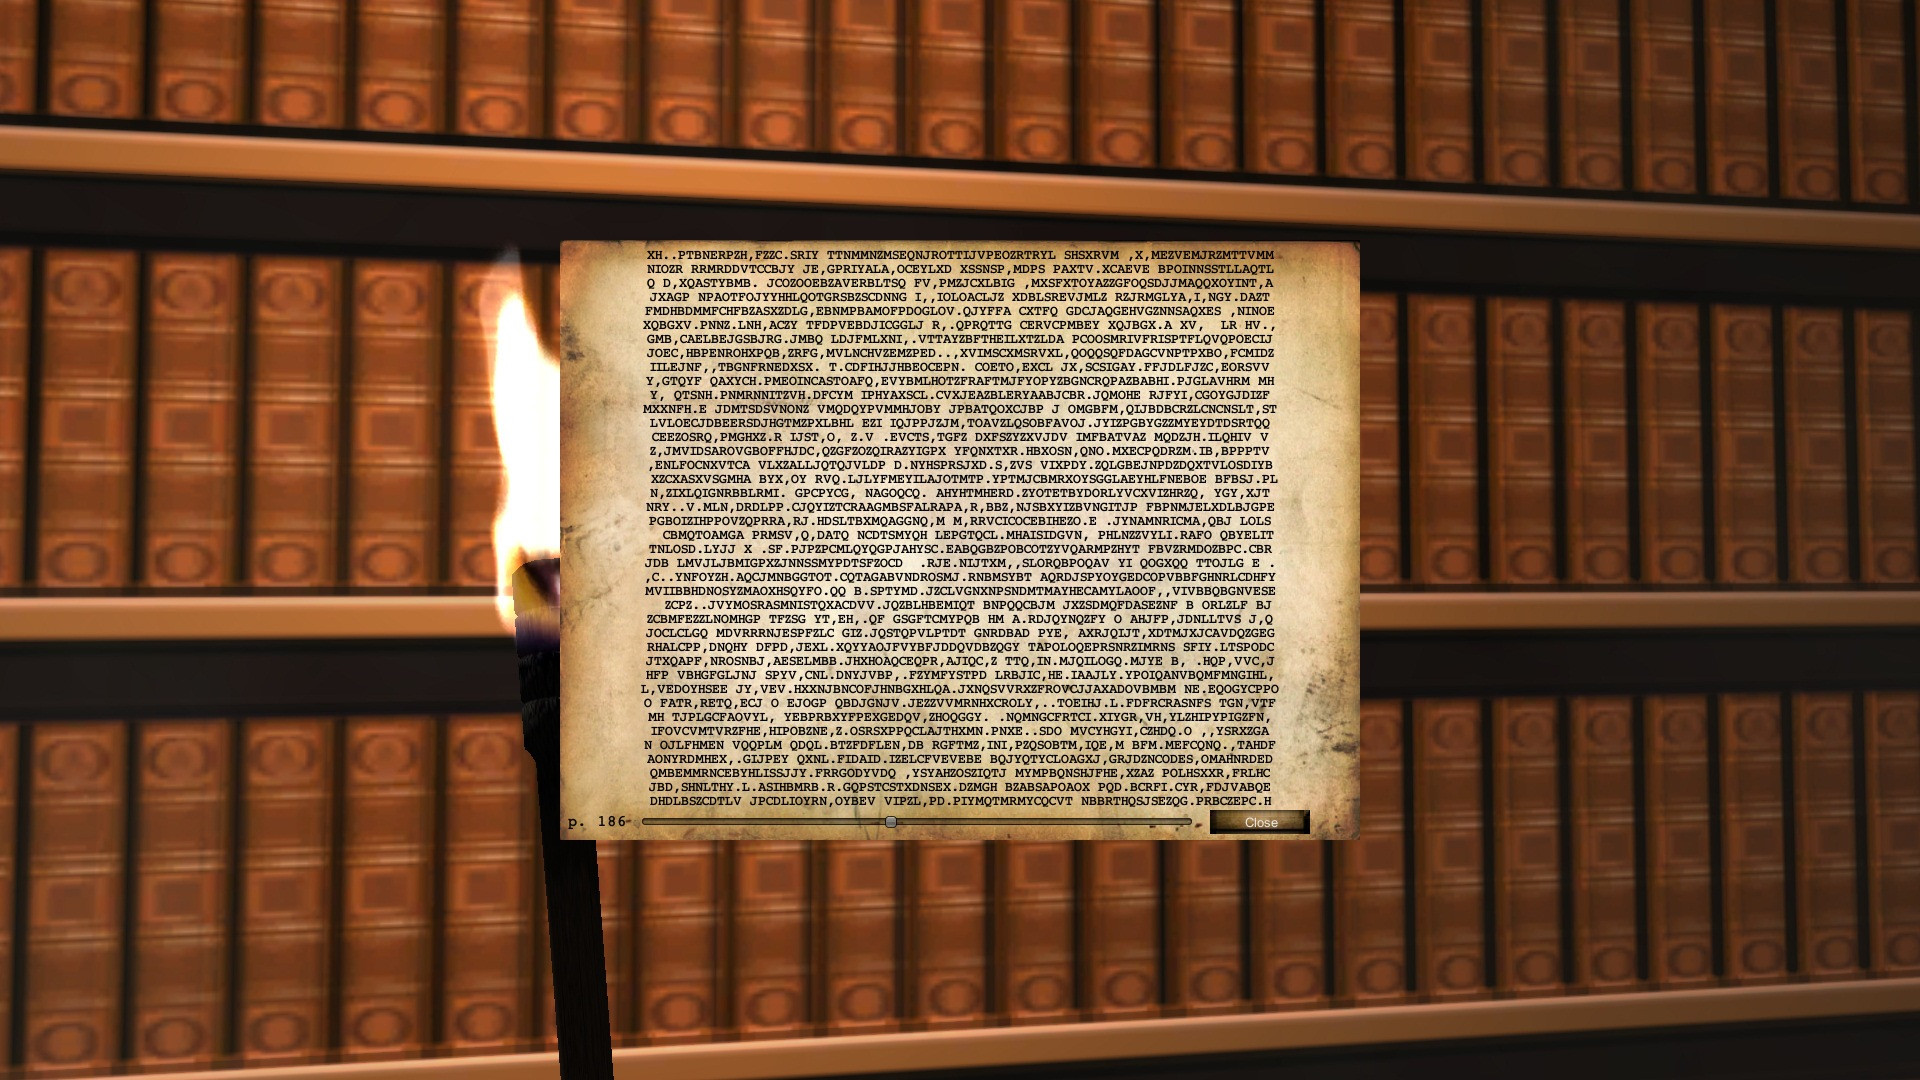 XH..PTBNERPZH,FZZC.SRIY TTNMMNZMSEQNJROTTIJVPEOZRTRYL SHSXRVM ,X,MEZVEMJRZMTTVMM
NIOZR RRMRDDVTCCBJY JE,GPRIYALA,OCEYLXD XSSNSP,MDPS PAXTV.XCAEVE BPOINNSSTLLAQTL
Q D,XQASTYBMB. JCOZOOEBZAVERBLTSQ FV,PMZJCXLBIG ,MXSFXTOYAZZGFOQSDJJMAQQXOYINT,A
JXAGP NPAOTFOJYYHHLQOTGRSBZSCDNNG I,,IOLOACLJZ XDBLSREVJMLZ RZJRMGLYA,I,NGY.DAZT
FMDHBDMMFCHFBZASXZDLG,EBNMPBAMOFPDOGLOV.QJYFFA CXTFQ GDCJAQGEHVGZNNSAQXES ,NINOE
XQBGXV.PNNZ.LNH,ACZY TFDPVEBDJICGGLJ R,.QPRQTTG CERVCPMBEY XQJBGX.A XV,  LR HV.,
GMB,CAELBEJGSBJRG.JMBQ LDJFMLXNI,.VTTAYZBFTHEILXTZLDA PCOOSMRIVFRISPTFLQVQPOECIJ
JOEC,HBPENROHXPQB,ZRFG,MVLNCHVZEMZPED..,XVIMSCXMSRVXL,QOQQSQFDAGCVNPTPXBO,FCMIDZ
IILEJNF,,TBGNFRNEDXSX. T.CDFIHJJHBEOCEPN. COETO,EXCL JX,SCSIGAY.FFJDLFJZC,EORSVV
Y,GTQYF QAXYCH.PMEOINCASTOAFQ,EVYBMLHOTZFRAFTMJFYOPYZBGNCRQPAZBABHI.PJGLAVHRM MH
Y, QTSNH.PNMRNNITZVH.DFCYM IPHYAXSCL.CVXJEAZBLERYAABJCBR.JQMOHE RJFYI,CGOYGJDIZF
MXXNFH.E JDMTSDSVNONZ VMQDQYPVMMHJOBY JPBATQOXCJBP J OMGBFM,QIJBDBCRZLCNCNSLT,ST
LVLOECJDBEERSDJHGTMZPXLBHL EZI IQJPPJZJM,TOAVZLQSOBFAVOJ.JYIZPGBYGZZMYEYDTDSRTQQ
CEEZOSRQ,PMGHXZ.R IJST,O, Z.V .EVCTS,TGFZ DXFSZYZXVJDV IMFBATVAZ MQDZJH.ILQHIV V
Z,JMVIDSAROVGBOFFHJDC,QZGFZOZQIRAZYIGPX YFQNXTXR.HBXOSN,QNO.MXECPQDRZM.IB,BPPPTV
,ENLFOCNXVTCA VLXZALLJQTQJVLDP D.NYHSPRSJXD.S,ZVS VIXPDY.ZQLGBEJNPDZDQXTVLOSDIYB
XZCXASXVSGMHA BYX,OY RVQ.LJLYFMEYILAJOTMTP.YPTMJCBMRXOYSGGLAEYHLFNEBOE BFBSJ.PL
N,ZIXLQIGNRBBLRMI. GPCPYCG, NAGOQCQ. AHYHTMHERD.ZYOTETBYDORLYVCXVIZHRZQ, YGY,XJT
NRY..V.MLN,DRDLPP.CJQYIZTCRAAGMBSFALRAPA,R,BBZ,NJSBXYIZBVNGITJP FBPNMJELXDLBJGPE
PGBOIZIHPPOVZQPRRA,RJ.HDSLTBXMQAGGNQ,M M,RRVCICOCEBIHEZO.E .JYNAMNRICMA,QBJ LOLS
CBMQTOAMGA PRMSV,Q,DATQ NCDTSMYQH LEPGTQCL.MHAISIDGVN, PHLNZZVYLI.RAFO QBYELIT
TNLOSD.LYJJ X .SF.PJPZPCMLQYQGPJAHYSC.EABQGBZPOBCOTZYVQARMPZHYT FBVZRMDOZBPC.CBR
JDB LMVJLJBMIGPXZJNNSSMYPDTSFZOCD  .RJE.NIJTXM,,SLORQBPOQAV YI QOGXQQ TTOJLG E .
,C..YNFOYZH.AQCJMNBGGTOT.CQTAGABVNDROSMJ.RNBMSYBT AQRDJSPYOYGEDCOPVBBFGHNRLCDHFY
MVIIBBHDNOSYZMAOXHSQYFO.QQ B.SPTYMD.JZCLVGNXNPSNDMTMAYHECAMYLAOOF,,VIVBBQBGNVESE
ZCPZ..JVYMOSRASMNISTQXACDVV.JQZBLHBEMIQT BNPQQCBJM JXZSDMQFDASEZNF B ORLZLF BJ
ZCBMFEZZLNOMHGP TFZSG YT,EH,.QF GSGFTCMYPQB HM A.RDJQYNQZFY O AHJFP,JDNLLTVS J,Q
JOCLCLGQ MDVRRRNJESPFZLC GIZ.JQSTQPVLPTDT GNRDBAD PYE, AXRJQLJT,XDTMJXJCAVDQZGEG
RHALCPP,DNQHY DFPD,JEXL.XQYYAOJFVYBFJDDQVDBZQGY TAPOLOQEPRSNRZIMRNS SFIY.LTSPODC
JTXQAPF,NROSNBJ,AESELMBB.JHXHOAQCEQPR,AJIQC,Z TTQ,IN.MJQILOGQ.MJYE B, .HQP,VVC,J
HFP VBHGFGLJNJ SPYV,CNL.DNYJVBP,.FZYMFYSTPD LRBJIC,HE.IAAJLY.YPOIQANVBQMFMNGIHL,
L,VEDOYHSEE JY,VEV.HXXNJBNCOFJHNBGXHLQA.JXNQSVVRXZFROVCJJAXADOVBMBM NE.EQOGYCPPO
O FATR,RETQ,ECJ O EJOGP QBDJGNJV.JEZZVVMRNHXCROLY,..TOEIHJ.L.FDFRCRASNFS TGN,VTF
MH TJPLGCFAOVYL, YEBPRBXYFPEXGEDQV,ZHOQGGY. .NQMNGCFRTCI.XIYGR,VH,YLZHIPYPIGZFN,
IFOVCVMTVRZFHE,HIPOBZNE,Z.OSRSXPPQCLAJTHXMN.PNXE..SDO MVCYHGYI,CZHDQ.O ,,YSRXZGA
N OJLFHMEN VQQPLM QDQL.BTZFDFLEN,DB RGFTMZ,INI,PZQSOBTM,IQE,M BFM.MEFCQNQ.,TAHDF
AONYRDMHEX,.GIJPEY QXNL.FIDAID.IZELCFVEVEBE BQJYQTYCLOAGXJ,GRJDZNCODES,OMAHNRDED
QMBEMMRNCEBYHLISSJJY.FRRGODYVDQ ,YSYAHZOSZIQTJ MYMPBQNSHJFHE,XZAZ POLHSXXR,FRLHC
JBD,SHNLTHY.L.ASIHBMRB.R.GQPSTCSTXDNSEX.DZMGH BZABSAPOAOX PQD.BCRFI.CYR,FDJVABQE
DHDLBSZCDTLV JPCDLIOYRN,OYBEV VIPZL,PD.PIYMQTMRMYCQCVT NBBRTHQSJSEZQG.PRBCZEPC.H
p. 186
Close